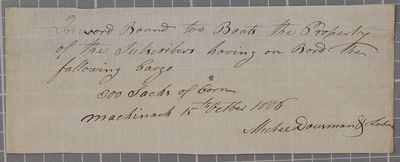 Inword Bound too Boats the Property
of the Subscribers having on Bord the
following Cargo
300 Sacks of Corn
Machinack 15th Octber 1806
Michel Dousman &